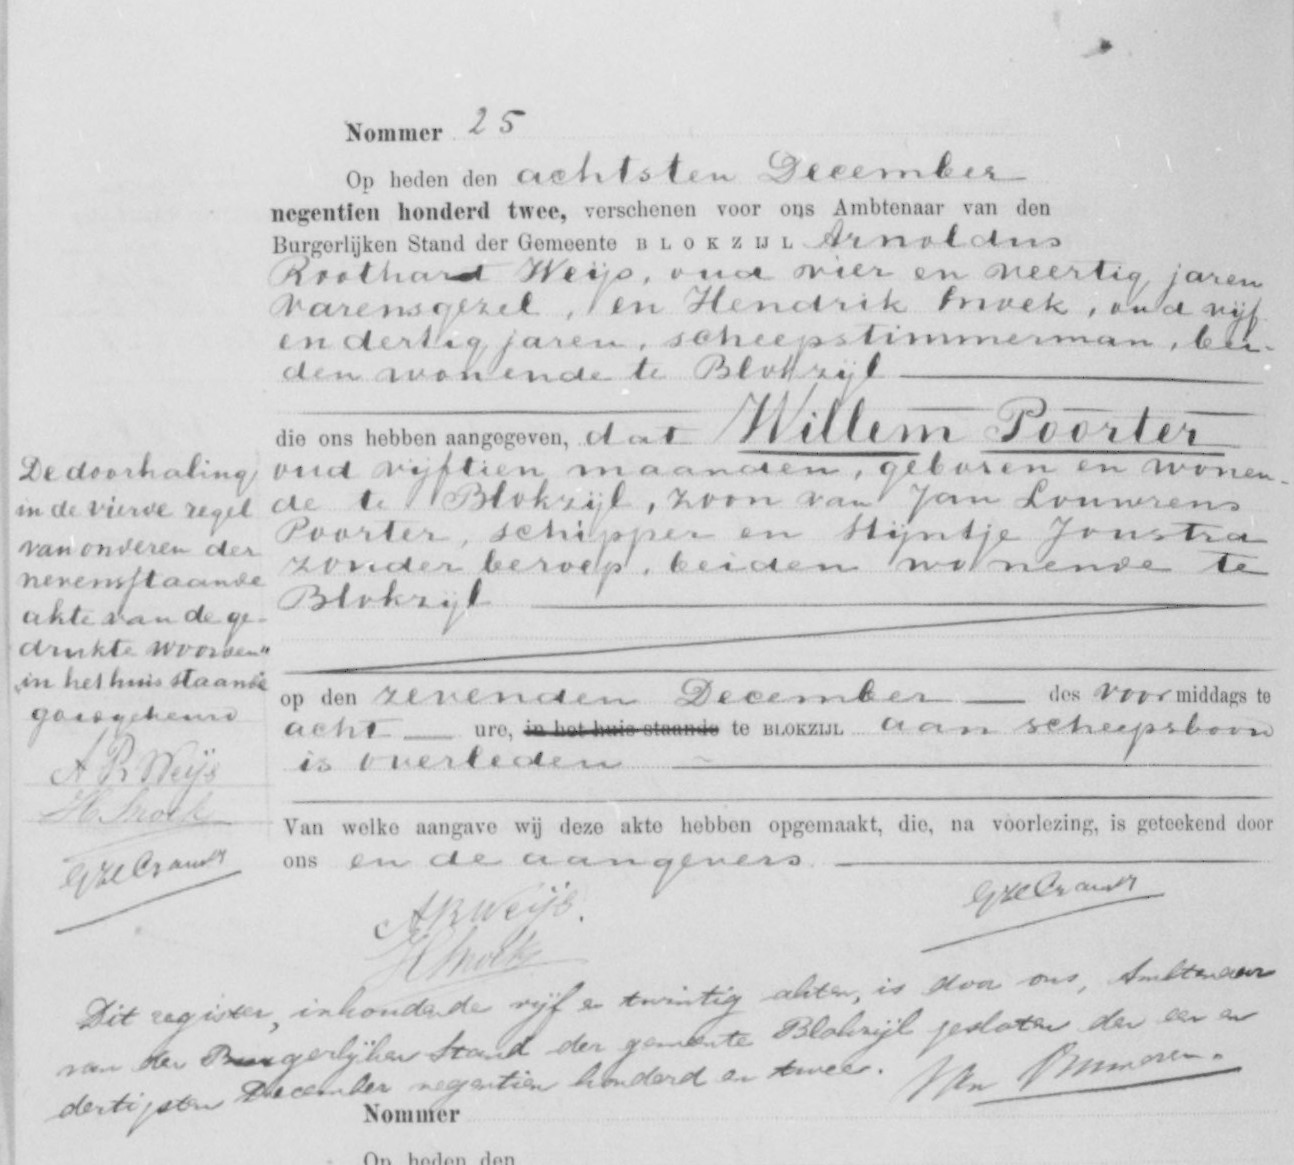 Nommer 25
Op heden den achtsten December
negentien honderd twee, verschenen voor ons Ambtenaar van den
Burgerlijken Stand der Gemeente BLOKZIJL Arnoldus
Roothart Weijs, oud vier en veertig jaren
varensgezel, en Hendrik Snoek, oud vijf
en dertig jaren, scheepstimmerman, bei-
den wonende te Blokzijl
die ons hebben aangegeven, dat Willem Poorter
oud vijftien maanden, geboren en wonen-
de te Blokzijl, zoon van Jan Louwrens
Poorter, schipper en Stijntje Jonstra
zonder beroep, beiden wonende te
Blokzijl
op den zevenden December des voormiddags te
acht ure, in het huis staande te BLOKZIJL aan scheepsboord
is overleden
Van welke aangave wij deze akte hebben opgemaakt, die, na voorlezing, is geteekend door
ons en de aangevers
De doorhaling
in de vierde regel
van onderen der
nevensstaande
akte van de ge-
drukte woorden
"in het huis staande"
goedgekeurd
A R Weijs
H Snoek
A R Weijs.
H Snoek
Dit register, inhoudende vijf en twintig akten, is door ons, Ambtenaar
van den Burgerlijken Stand der gemeente Blokzijl gesloten den een en
dertigsten December negentien honderd en twee.
Nommer
Op heden den